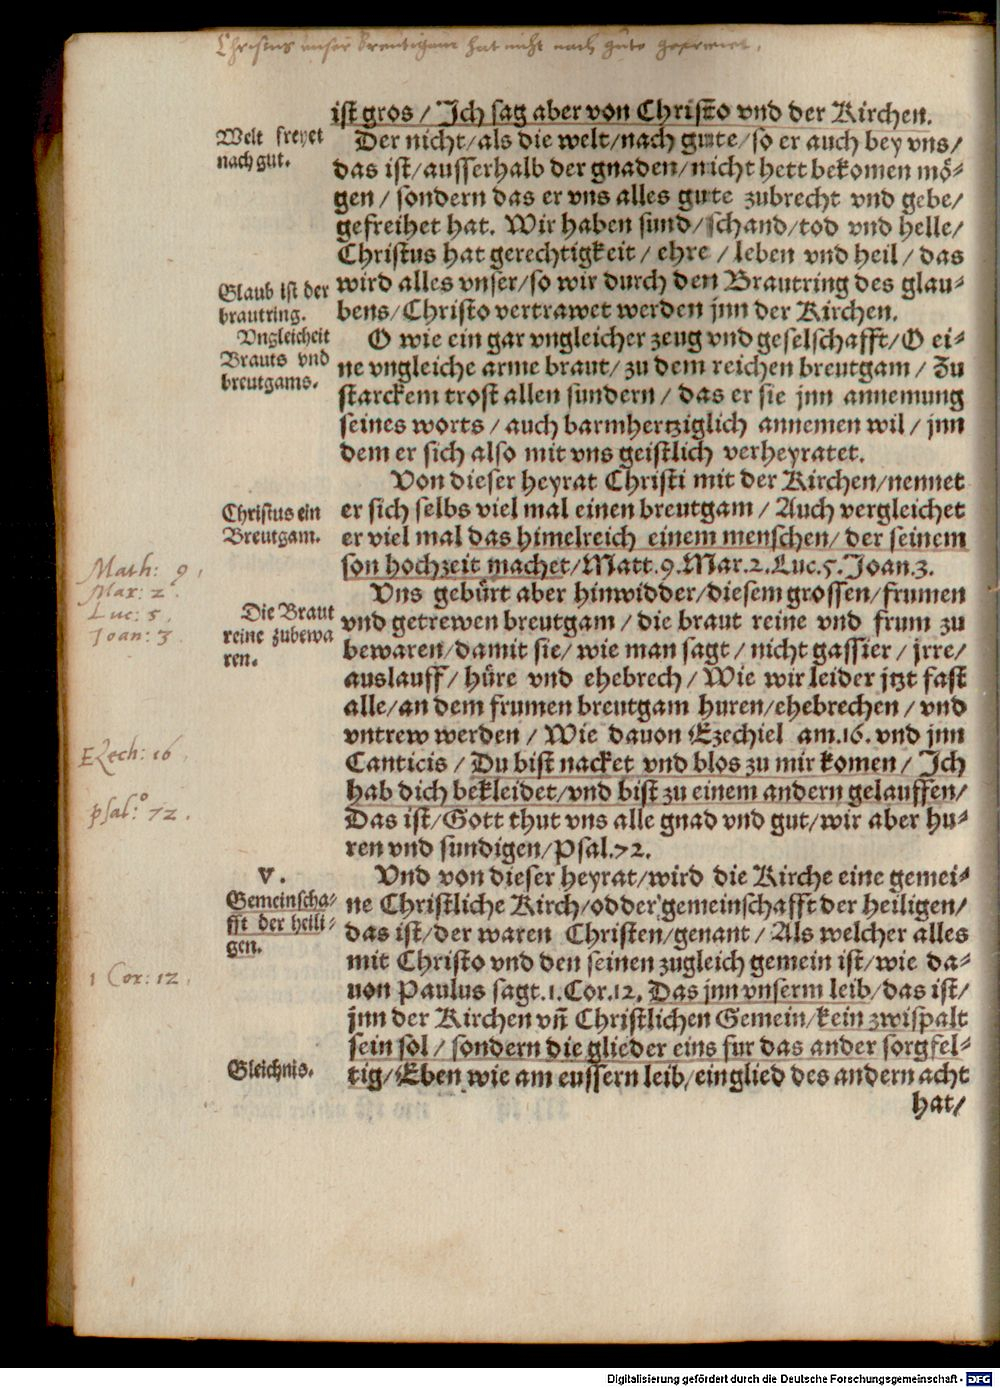 Christus unser Breutigam hat nicht nach gute gefreiet.
ist gros / Ich sag aber von Christo vnd der Kirchen.
Welt freyet
nach gut.
Der nicht / als die welt / nach gute / so er auch bey vns /
das ist / ausserhalb der gnaden / nicht hett bekomen mö-
gen / sondern das er vns alles gute zubrecht vnd gebe /
gefreihet hat. Wir haben sund / schand / tod vnd helle /
Christus hat gerechtigkeit / ehre / leben vnd heil / das
Glaub ist der
brautring.
wird alles vnser / so wir durch den Brautring des glau-
bens / Christo vertrawet werden jnn der Kirchen.
Vngleicheit
Brauts vnd
breutgams.
O wie ein gar vngleicher zeug vnd geselschafft / O ei-
ne vngleiche arme braut / zu dem reichen breutgam / Zu
starckem trost allen sundern / das er sie jnn annemung
seines worts / auch barmhertziglich annemen wil / jnn
dem er sich also mit vns geistlich verheyratet.
Von dieser heyrat Christi mit der Kirchen / nennet
Christus ein
Breutgam.
er sich selbs viel mal einen breutgam / Auch vergleichet
er viel mal das himelreich einem menschen / der seinem
son hochzeit machet / Matt. 9. Mar. 2. Luc. 5. Joan. 3.
Math: 9,
Mar: 2.
Luc: 5,
Joan: 3
Die Braut
reine zubewa
ren.
Vns gebürt aber hinwidder / diesem grossen / frumen
vnd getrewen breutgam / die braut reine vnd frum zu
bewaren / damit sie / wie man sagt / nicht gassier / jrre /
auslauff / hüre vnd ehebrech / Wie wir leider jtzt fast
alle / an dem frumen breutgam huren / ehebrechen / vnd
vntrew werden / Wie dauon Ezechiel am. 16. vnd jnn
Ezech: 16
Canticis / Du bist nacket vnd blos zu mir komen / Ich
hab dich bekleidet / vnd bist zu einem andern gelauffen /
psal:o 72.
Das ist / Gott thut vns alle gnad vnd gut / wir aber hu-
ren vnd sundigen / Psal. 72.
V.
Gemeinscha-
fft der heili-
gen.
Vnd von dieser heyrat / wird die Kirche eine gemei-
ne Christliche Kirch / odder gemeinschafft der heiligen /
das ist / der waren Christen / genant / Als welcher alles
mit Christo vnd den seinen zugleich gemein ist / wie da-
1 Cor: 12,
uon Paulus sagt. 1. Cor. 12. Das jnn vnserm leib / das ist /
jnn der Kirchen vñ Christlichen Gemein / kein zwispalt
sein sol / sondern die glieder eins fur das ander sorgfel-
Gleichnis.
tig / Eben wie am eussern leib / ein glied des andern acht
hat /
Digitalisierung gefördert durch die Deutsche Forschungsgemeinschaft - DFG